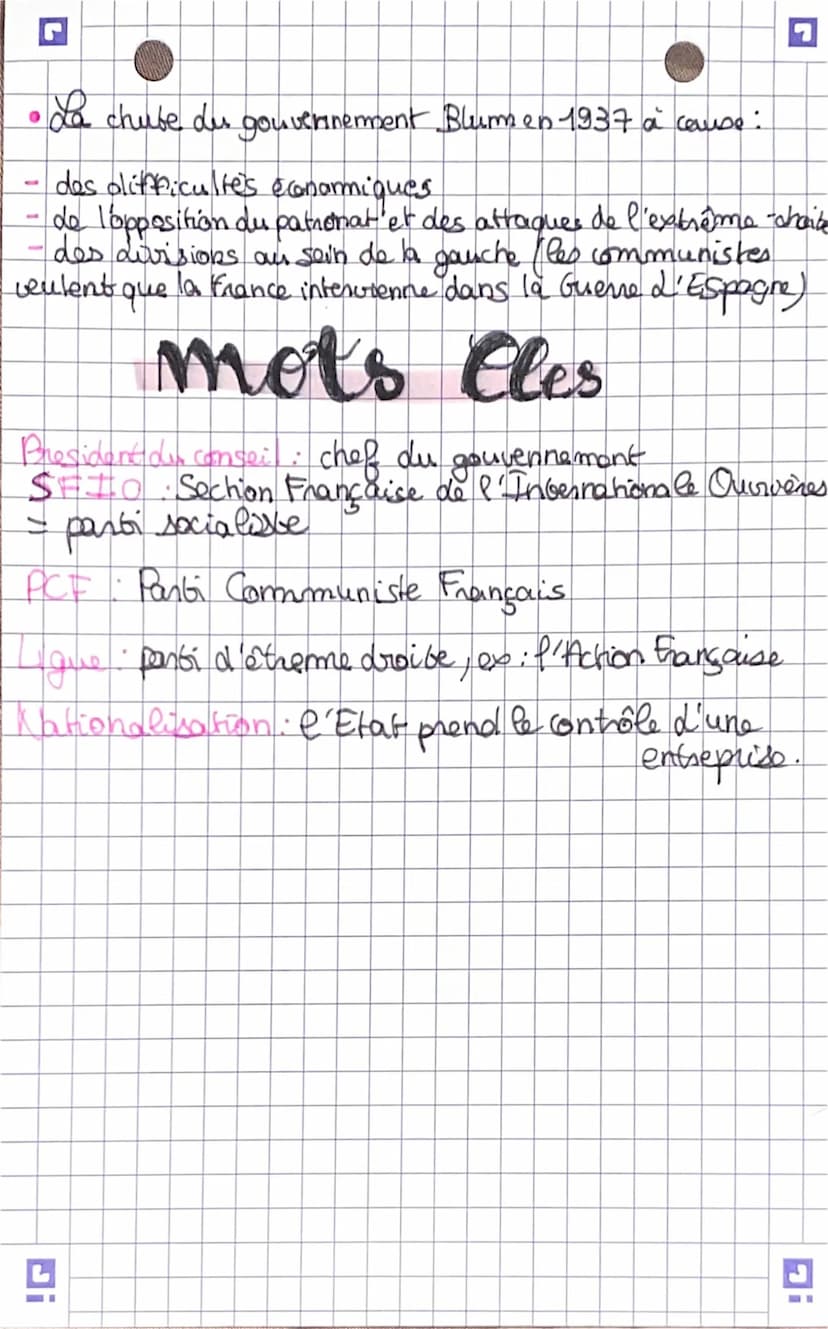 • La chute du gouvernement Blum en 1937 à cause :
- des difficultés économiques
- de l'opposition du patronat et des attaques de l'extrême-droite
- des divisions au sein de la gauche (les communistes
veulent que la France intervienne dans la Guerre d'Espagne)
Mots Cles
President du conseil : chef du gouvernnement
SFIO : Section Française de l'Internationale Ouvrières
= parti socialiste
PCF : Parti Communiste Français
Ligue : parti d'êtreme droite, ex : l'Action Française
Nationalisation : l'Etat prend le contrôle d'une
entreprise.